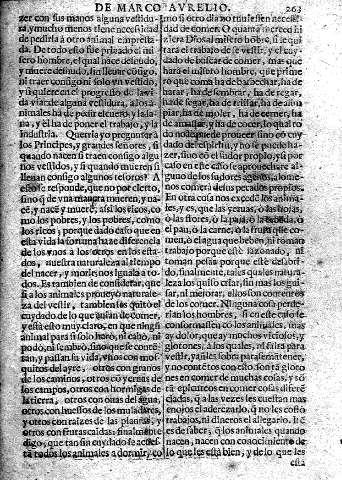 DE MARCO AVRELIO. 263
zer con sus manos alguna vestidu-
ra, y mucho menos tiene necesidad
de pedirla a otro animal emprestada.
De todo esto fue privado el mi-
sero hombre, el qual nace desnudo,
y muere desnudo, sin llevar consigo,
ni traer consigo ni solo vn vestido,
y si quiere en el progresso de la vi-
da vsar de alguna vestidura, a los a-
nimales ha de pedir el cuero y la la-
na, y el ha de poner el trabajo, y la
industria. Querria yo preguntar a
los Principes, y grandes señores, si
quando nacen si traen consigo algu-
nos vestidos, y si quando mueren si
llevan consigo algunos tesoros? A
esto se responde, que no por cierto,
sino q̃ de vna manera mueren, y na-
cẽ, y nacẽ y muerẽ, assi los ricos, co-
mo los pobres, y los pobres, como
los ricos; porque dado caso que en
esta vida la fortuna haze diferencia
de los vnos a los otros en los esta-
dos, nuestra naturaleza al tiempo
del nacer, y morir, nos iguala a to-
dos. Es tambien de considerar, que
si a los animales proueyó naturale-
za del vestir, tambien les quitó el
cuydado de lo que auian de comer,
y está esto muy claro, en que ningũ
animal para si solo hará, ni cabó, ni
podó, ni sembró, sino que se conten-
tan, y passan su vida, vnos con mos-
quitos del ayre, otros con granos
de los caminos, otros con yeruas de
los campos, otros con hormigas de
la tierra, otros con ouas del agua,
otros con huessos de los muladares,
otros con raizes de las plantas, y
otros con frutas caidas: finalmente
digo, que tan sin cuydado se acues-
tã todos los animales a dormir, co
mo si otro dia no tuuiessen necessi-
dad de comer. O quanta merced hi-
ziera Dios al misero hõbre, si le qui-
tara el trabajo de se vestir, y el cuy-
dado de buscar de comer, mas que
hará el misero hombre, que prime-
ro que coma ha de barbechar, ha de
harar, ha de sembrar, ha de regar,
ha de segar, ha de trillar, ha de alim-
piar, ha de moler, ha de cerner, ha
de amassar, y ha de cozer, lo qual to-
do no se puede proueer sino cõ cuy-
dado del espiritu, y no se puede ha-
zer, sino con el sudor proprio, y si por
caso en este caso se aprouechare al-
guno de los sudores agenos, a lo me-
nos comerá de sus pecados propios.
En otra cosa nos exceden los anima-
les, y es, que las yeruas, ó las hojas,
ó las flores, ó la paja, ó la cebada, ó
el pan, ó la carne, ó la fruta que co-
men, ó el agua que beben, ni toman
trabajo porque esté sazonado, ni
toman pesar porque esté dessabri-
do, finalmente, tales quales natura-
leza los quiso criar, sin mas los gui-
sar, ni mejorar, ellos son contentos
de los comer. Ninguna cosa perde-
rian los hombres, si en este caso se
conformassen cõ los animales, mas
ay dolor, que ay muchos viciosos, y
glotones, a los quales, ni falta para
vestir, y aũ les sobra para se mãtener,
y no contẽtos con esto, son tã gloto-
nes en comer de muchas cosas, y sõ
tã epicureos en comer cosas difere-
ciadas, q̃ a las vezes les cuestan mas
enojos el aderezarlo, q̃ no les costó
trabajos, ni dineros el allegarlo. Itẽ
es de saber, q̃ los animales quando
nacen, nacen con conocimiento de
lo que les está bien, y de lo que les
está